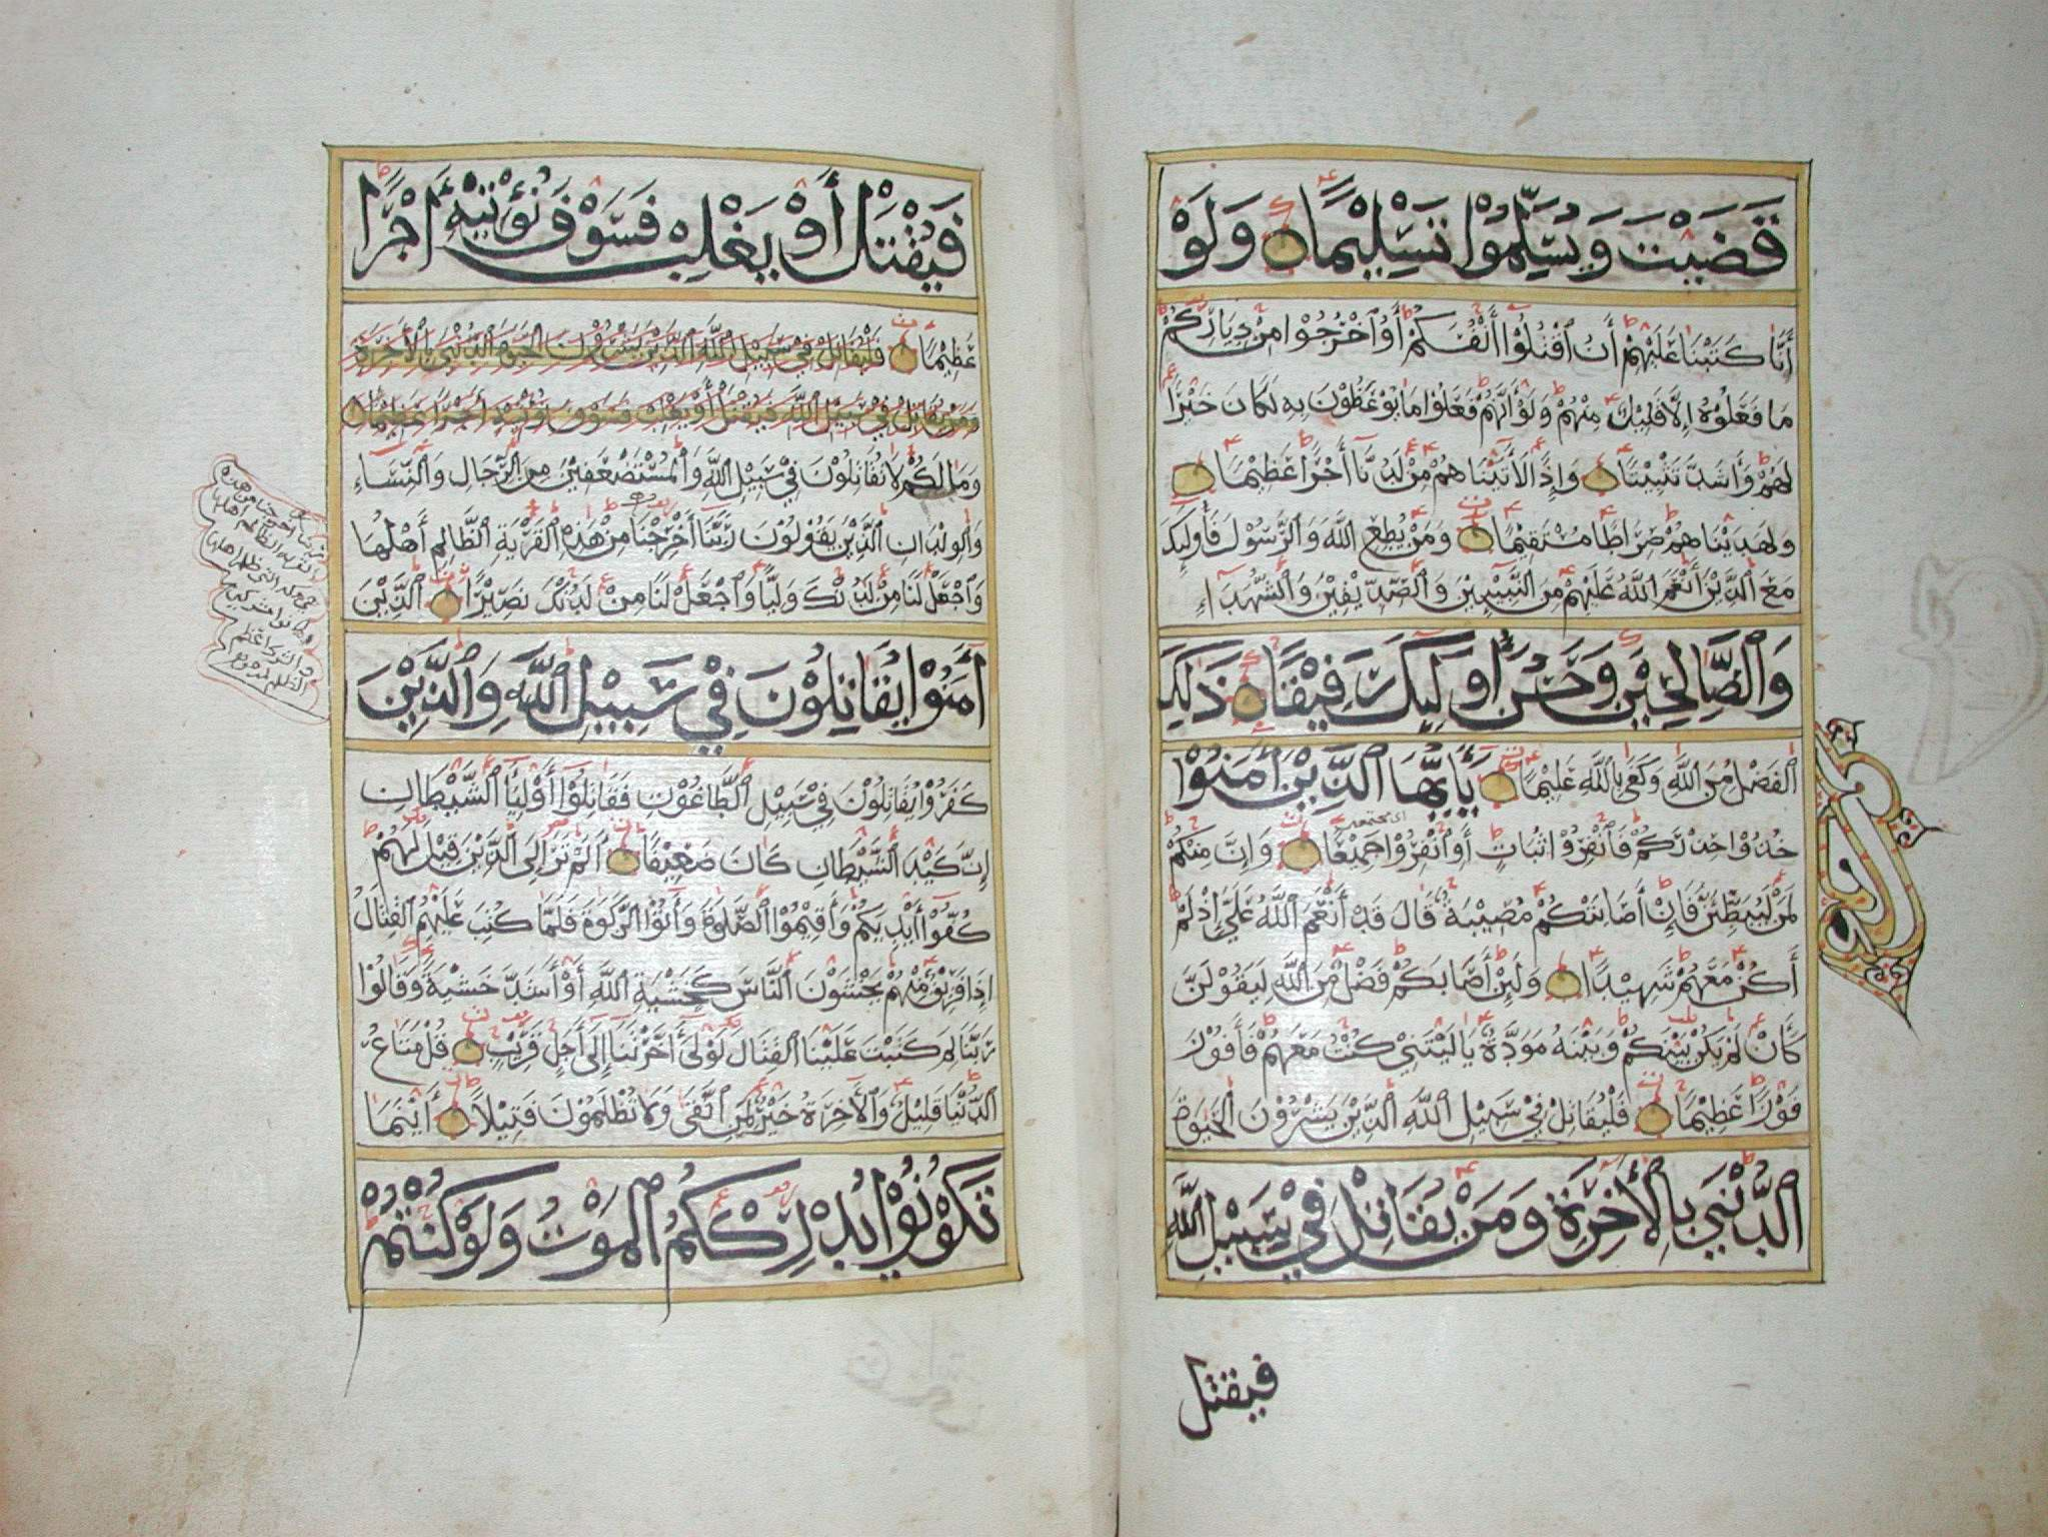 قَضَيْتَ وَيُسَلِّمُوْا تَسْلِيْمًا وَلَوْ
أَنَّا كَتَبْنَا عَلَيْهِمْ أَنِ اقْتُلُوْا أَنْفُسَكُمْ أَوِ اخْرُجُوْا مِنْ دِيَارِكُمْ
مَا فَعَلُوْهُ إِلَّا قَلِيْلٌ مِنْهُمْ وَلَوْ أَنَّهُمْ فَعَلُوْا مَا يُوْعَظُوْنَ بِهِ لَكَانَ خَيْرًا
لَهُمْ وَأَشَدَّ تَثْبِيْتًا وَإِذًا لَأَتَيْنَاهُمْ مِنْ لَدُنَّا أَجْرًا عَظِيْمًا
وَلَهَدَيْنَاهُمْ صِرَاطًا مُسْتَقِيْمًا وَمَنْ يُطِعِ اللَّهَ وَالرَّسُوْلَ فَأُولَئِكَ
مَعَ الَّذِيْنَ أَنْعَمَ اللَّهُ عَلَيْهِمْ مِنَ النَّبِيِّيْنَ وَالصِّدِّيْقِيْنَ وَالشُّهَدَاءِ
وَالصَّالِحِيْنَ وَحَسُنَ أُولَئِكَ رَفِيْقًا ذَلِكَ
الْفَضْلُ مِنَ اللَّهِ وَكَفَى بِاللَّهِ عَلِيْمًا يَأَيُّهَا الَّذِيْنَ أَمَنُوْا
خُذُوْا حِذْرَكُمْ فَانْفِرُوْا ثُبَاتٍ أَوِ انْفِرُوْا جَمِيْعًا وَإِنَّ مِنْكُمْ
لَمَنْ لَيُبَطِّئَنَّ فَإِنْ أَصَابَتْكُمْ مُصِيْبَةٌ قَالَ قَدْ أَنْعَمَ اللَّهُ عَلَيَّ إِذْ لَمْ
أَكُنْ مَعَهُمْ شَهِيْدًا وَلَئِنْ أَصَابَكُمْ فَضْلٌ مِنَ اللَّهِ لَيَقُوْلَنَّ
كَأَنْ لَمْ يَكُنْ بَيْنَكُمْ وَبَيْنَهُ مَوَدَّةٌ يَا لَيْتَنِيْ كُنْتُ مَعَهُمْ فَأَفُوْزَ
فَوْزًا عَظِيْمًا فَلْيُقَاتِلْ فِيْ سَبِيْلِ اللَّهِ الَّذِيْنَ يَشْرُوْنَ الْحَيٰوةَ
الدُّنْيَى بِالْأَخِرَةِ وَمَنْ يُقَاتِلْ فِيْ سَبِيْلِ اللَّهِ
فيقتل
فَيُقْتَلْ أَوْ يَغْلِبْ فَسَوْفَ نُؤْتِيْهِ أَجْرًا
عَظِيْمًا فَلْيُقَاتِلْ فِيْ سَبِيْلِ اللَّهِ الَّذِيْنَ يَشْرُوْنَ الْحَيٰوةَ الدُّنْيَى بِالْأَخِرَةِ
وَمَنْ يُقَاتِلْ فِيْ سَبِيْلِ اللَّهِ فَيُقْتَلْ أَوْ يَغْلِبْ فَسَوْفَ نُؤْتِيْهِ أَجْرًا عَظِيْمًا
وَمَا لَكُمْ لَا تُقَاتِلُوْنَ فِيْ سَبِيْلِ اللَّهِ وَالْمُسْتَضْعَفِيْنَ مِنَ الرِّجَالِ وَالنِّسَاءِ
وَالْوِلْدَانِ الَّذِيْنَ يَقُوْلُوْنَ رَبَّنَا أَخْرِجْنَا مِنْ هَذِهِ الْقَرْيَةِ الظَّالِمِ أَهْلُهَا
وَاجْعَلْ لَنَا مِنْ لَدُنْكَ وَلِيًّا وَاجْعَلْ لَنَا مِنْ لَدُنْكَ نَصِيْرًا الَّذِيْنَ
أَمَنُوْا يُقَاتِلُوْنَ فِيْ سَبِيْلِ اللَّهِ وَالَّذِيْنَ
كَفَرُوْا يُقَاتِلُوْنَ فِيْ سَبِيْلِ الطَّاغُوْتِ فَقَاتِلُوْا أَوْلِيَآءَ الشَّيْطَانِ
إِنَّ كَيْدَ الشَّيْطَانِ كَانَ ضَعِيْفًا أَلَمْ تَرَ إِلَى الَّذِيْنَ قِيْلَ لَهُمْ
كُفُّوْا أَيْدِيَكُمْ وَأَقِيْمُوا الصَّلٰوةَ وَأَتُوا الزَّكٰوةَ فَلَمَّا كُتِبَ عَلَيْهِمُ الْقِتَالُ
إِذَا فَرِيْقٌ مِنْهُمْ يَخْشَوْنَ النَّاسَ كَخَشْيَةِ اللَّهِ أَوْ أَشَدَّ خَشْيَةً وَقَالُوْا
رَبَّنَا لِمَ كَتَبْتَ عَلَيْنَا الْقِتَالَ لَوْلَى أَخَّرْتَنَا إِلَى أَجَلٍ قَرِيْبٍ قُلْ مَتَاعُ
الدُّنْيَا قَلِيْلٌ وَالْأَخِرَةُ خَيْرٌ لِمَنِ اتَّقَى وَلَا تُظْلَمُوْنَ فَتِيْلًا أَيْنَمَا
تَكُوْنُوْا يُدْرِكْكُمُ الْمَوْتُ وَلَوْ كُنْتُمْ